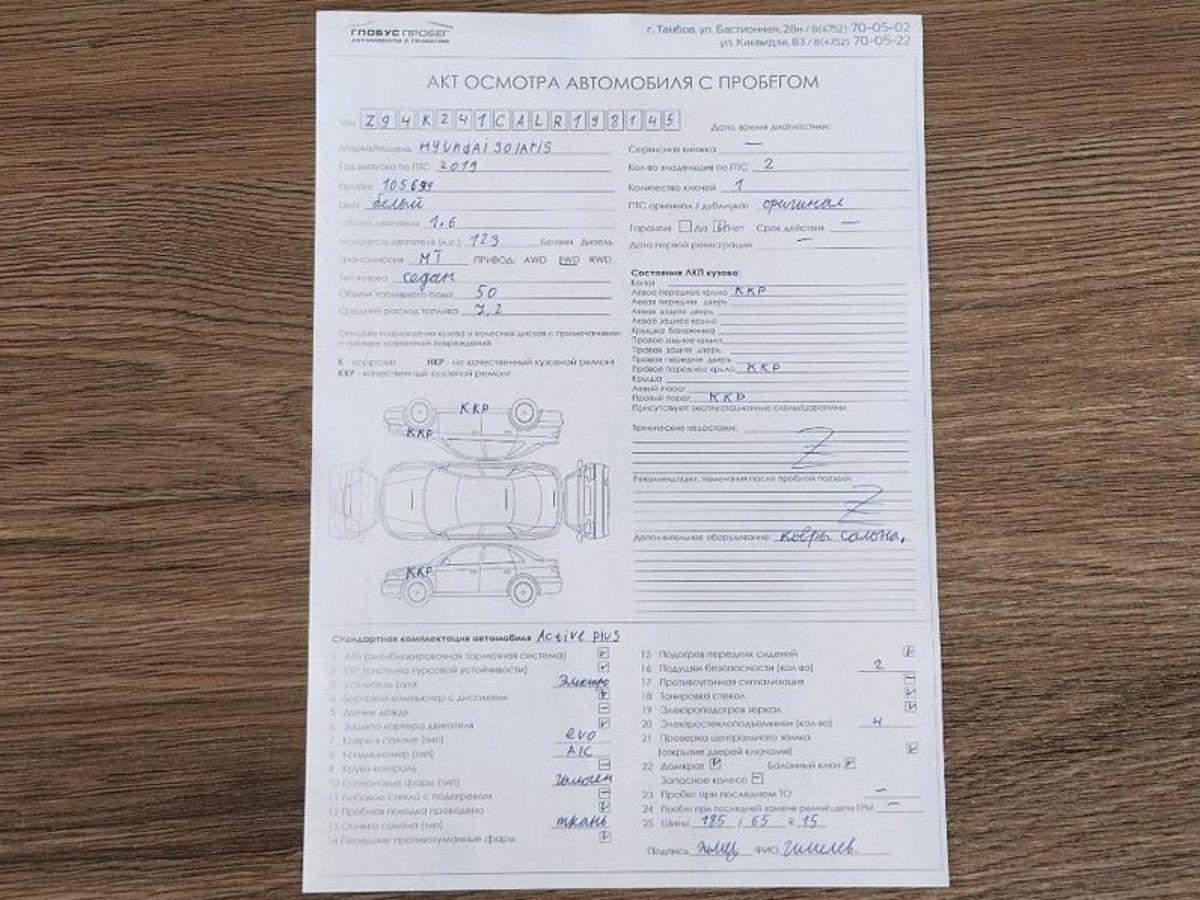 ГЛОБУС ПРОБЕГ
АВТОМОБИЛИ С ПРОБЕГОМ
г. Тамбов, ул. Бастионная, 28н / 8(4752) 70-05-02
ул. Киквидзе, 83 / 8(4752) 70-05-22
АКТ ОСМОТРА АВТОМОБИЛЯ С ПРОБЕГОМ
VIN Z94K241CALR198145
Дата, время диагностики:
Марка/Модель HYUNDAI SOLARIS
Год выпуска по ПТС 2019
Пробег 105694
Цвет белый
Объем двигателя 1.6
Мощность двигателя (л.с.) 123 Бензин Дизель
Трансмиссия МТ ПРИВОД: AWD FWD RWD
Тип кузова седан
Объем топливного бака 50
Средний расход топлива 7,2
Сервисная книжка —
Кол-во владельцев по ПТС 2
Количество ключей 1
ПТС оригинал / дубликат оригинал
Гарантия Да Нет Срок действия —
Дата первой регистрации —
Описание повреждения кузова и колесных дисков с примечаниями
о порядке устранения повреждений
К - коррозия НКР - не качественный кузовной ремонт
ККР - качественный кузовной ремонт
ККР
ККР
ККР
Состояние ЛКП кузова:
Капот
Левое переднее крыло ККР
Левая передняя дверь
Левая задняя дверь
Левое заднее крыло
Крышка багажника
Правое заднее крыло
Правая задняя дверь
Правая передняя дверь
Правое переднее крыло ККР
Крыша
Левый порог
Правый порог ККР
Присутствуют эксплуатационные сколы/царапины
Технические недостатки: Z
Рекомендации, замечания после пробной поездки: Z
Дополнительное оборудование ковры салона.
Стандартная комплектация автомобиля Active plus
1 ABS (антиблокировочная тормозная система)
2 ESP (система курсовой устойчивости)
3 Усилитель руля Электро
4 Бортовой компьютер с дисплеем
5 Датчик дождя
6 Защита картера двигателя
7 Ковры в салоне (тип) evo
8 Кондиционер (тип) A/C
9 Круиз-контроль
10 Ксеноновые фары (тип) галоген
11 Лобовое стекло с подогревом
12 Пробная поездка проведена
13 Обивка салона (тип) ткань
14 Передние противотуманные фары
15 Подогрев передних сидений
16 Подушки безопасности (кол-во) 2
17 Противоугонная сигнализация
18 Тонировка стекол
19 Электроподогрев зеркал
20 Электростеклоподъемники (кол-во) 4
21 Проверка центрального замка
(открытие дверей ключами)
22 Домкрат Балонный ключ
Запасное колесо
23 Пробег при последнем ТО —
24 Пробег при последней замене ремня/цепи ГРМ —
25 Шины 185 / 65 R 15
Подпись ФИО